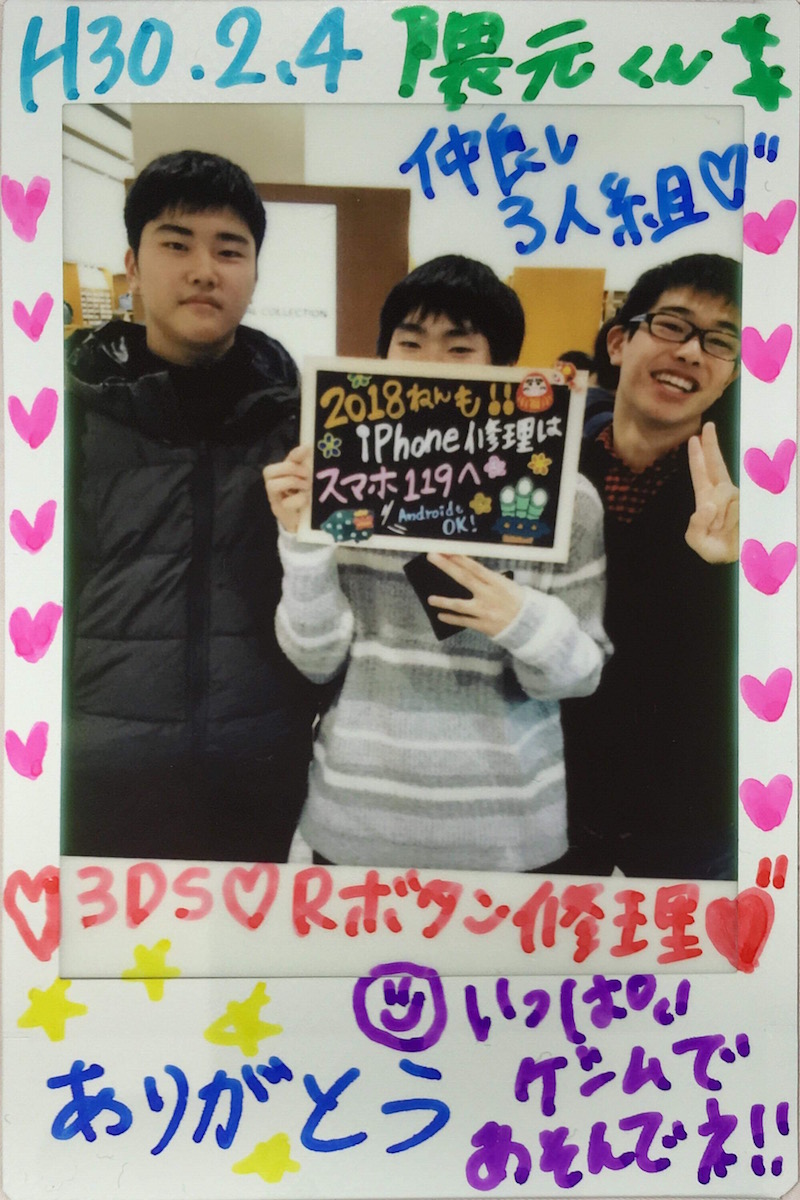 H30.2.4 隈元くん
仲良し
3人組♡"
COLLECTION
2018ねんも!!
iPhone修理は
スマホ119へ
Androidも
OK!
♡3DS♡Rボタン修理♥"
いっぱい
ゲームで
あそんでネ!!
ありがとう